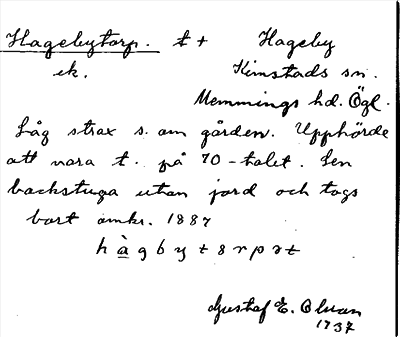 Hagebytorp. t + Hageby
ek. Kimstads sn.
Memmings hd. Ögl.
Låg strax s. om gården. Upphörde
att vara t. på 70-talet. Sen
backstuga utan jord och togs
bort omkr. 1887
Gustaf E. Olsson
1937